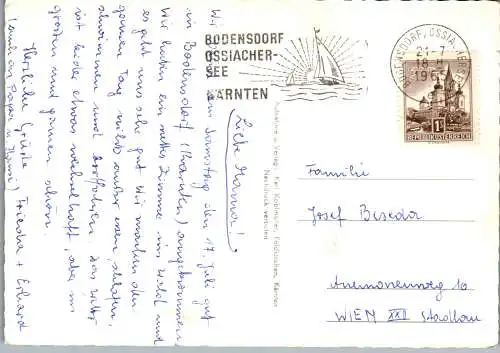 BODENSDORF
OSSIACHER-
SEE
KÄRNTEN
BODENSDORF, OSSIA
21.-7.
18
196
1S
REPUBLIK ÖSTERREICH
Liebe Mamma!
Wir sind am Samstag den 17. Juli gut
in Bodensdorf (Kärnten) angekommen
Wir haben ein nettes Zimmer im Wald und
es geht uns sehr gut. Wir machen den
ganzen Tag nichts außer essen, schlafen,
schwimmen und Das Wetter
ist leider etwas wechselhaft, aber im
großen und ganzen schön.
Herzliche Grüße
(auch an Papa u. ) Friedl + Erhard
Aufnahme u. Verlag: Feldkirchen, Kärnten
Nachdruck verboten
Familie
Josef Beseda
Anemonenweg 10
WIEN XXII Stadlau